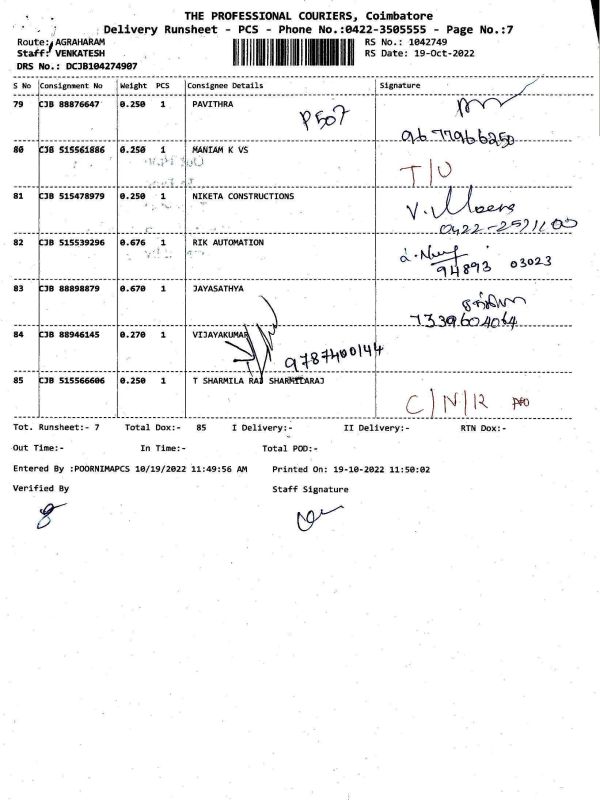 THE PROFESSIONAL COURIERS, Coimbatore
Delivery Runsheet - PCS - Phone No.:0422-3505555 - Page No.:7
Route: AGRAHARAM
RS No.: 1042749
Staff: VENKATESH
RS Date: 19-Oct-2022
DRS No.: DCJB104274907
S No Consignment No Weight PCS Consignee Details Signature
79 CJB 88876647 0.250 1 PAVITHRA
P507
9677966250
80 CJB 515561886 0.250 1 MANIAM K VS
T/U
81 CJB 515478979 0.250 1 NIKETA CONSTRUCTIONS
V.
82 CJB 515539296 0.676 1 RIK AUTOMATION
94893 03023
83 CJB 88898879 0.670 1 JAYASATHYA
7339604064
84 CJB 88946145 0.270 1 VIJAYAKUMAR
9787400144
85 CJB 515566606 0.250 1 T SHARMILA RAJ SHARMILARAJ
C/N/R
Tot. Runsheet:- 7 Total Dox:- 85 I Delivery:- II Delivery:- RTN Dox:-
Out Time:- In Time:- Total POD:-
Entered By :POORNIMAPCS 10/19/2022 11:49:56 AM Printed On: 19-10-2022 11:50:02
Verified By Staff Signature